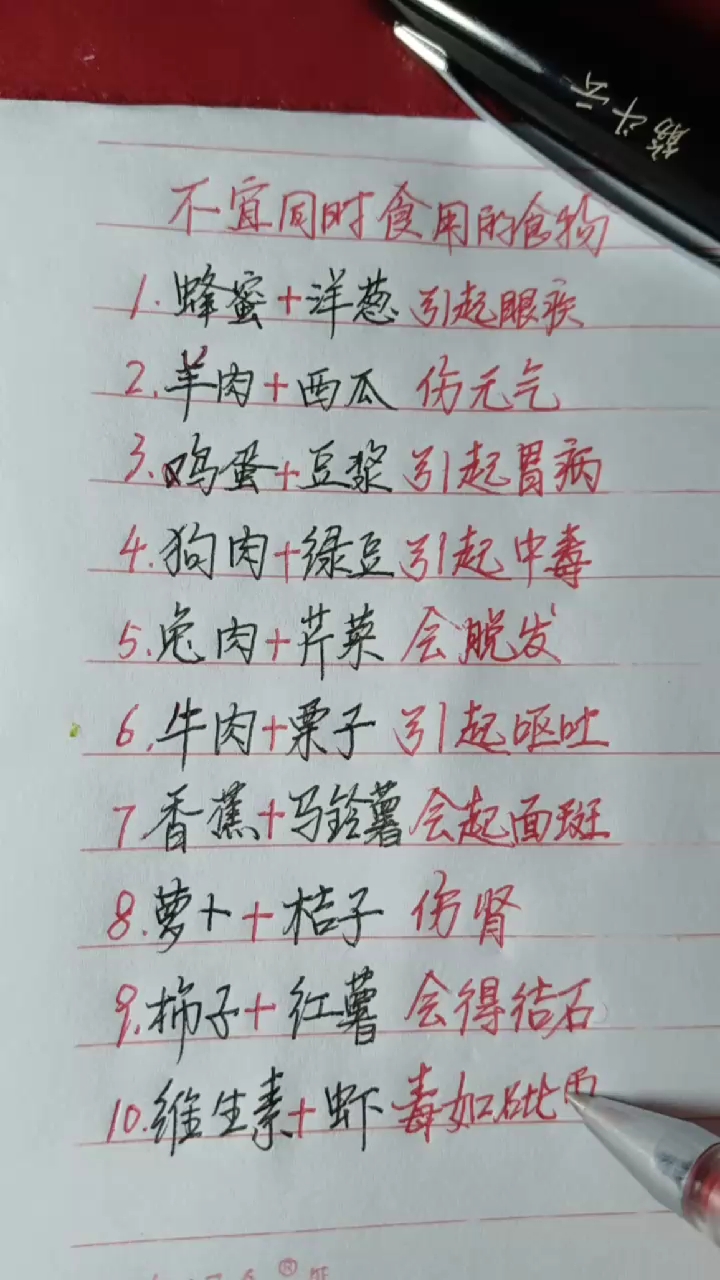 筋斗云
不宜同时食用的食物
1.蜂蜜+洋葱 引起眼疾
2.羊肉+西瓜 伤元气
3.鸡蛋+豆浆 引起胃病
4.狗肉+绿豆引起中毒
5.兔肉+芹菜 会脱发
6.牛肉+栗子 引起呕吐
7香蕉+马铃薯会起面斑
8.萝卜+桔子 伤肾
9.柿子+红薯 会得结石
10.维生素+虾 毒如砒